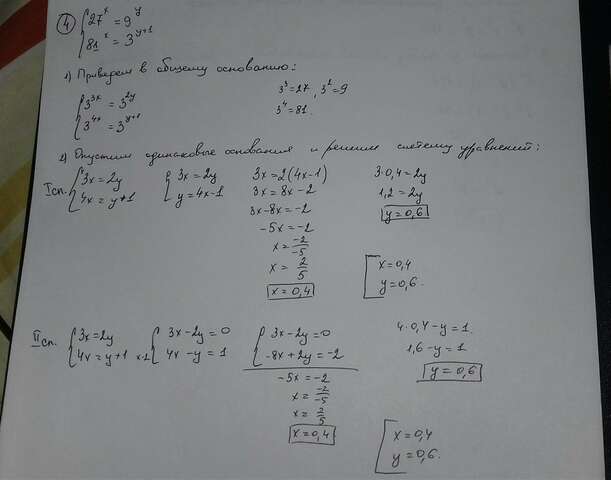 ④ { 27^x = 9^y
81^x = 3^{y+1}
1) Приведем в общему основанию:
{ 3^{3x} = 3^{2y}
3^{4x} = 3^{y+1}
3^3 = 27, 3^2 = 9
3^4 = 81.
2) Опустим одинаковые основания и решим систему уравнений:
I сп. { 3x = 2y
4x = y+1
{ 3x = 2y
y = 4x-1
3x = 2(4x-1)
3x = 8x - 2
3x - 8x = -2
-5x = -2
x = -2/-5
x = 2/5
x = 0,4
3·0,4 = 2y
1,2 = 2y
y = 0,6
[ x = 0,4
y = 0,6.
II сп. { 3x = 2y
4x = y+1
{ 3x - 2y = 0
4x - y = 1
{ 3x - 2y = 0
-8x + 2y = -2
-5x = -2
x = -2/-5
x = 2/5
x = 0,4
4·0,4 - y = 1.
1,6 - y = 1
y = 0,6
[ x = 0,4
y = 0,6.